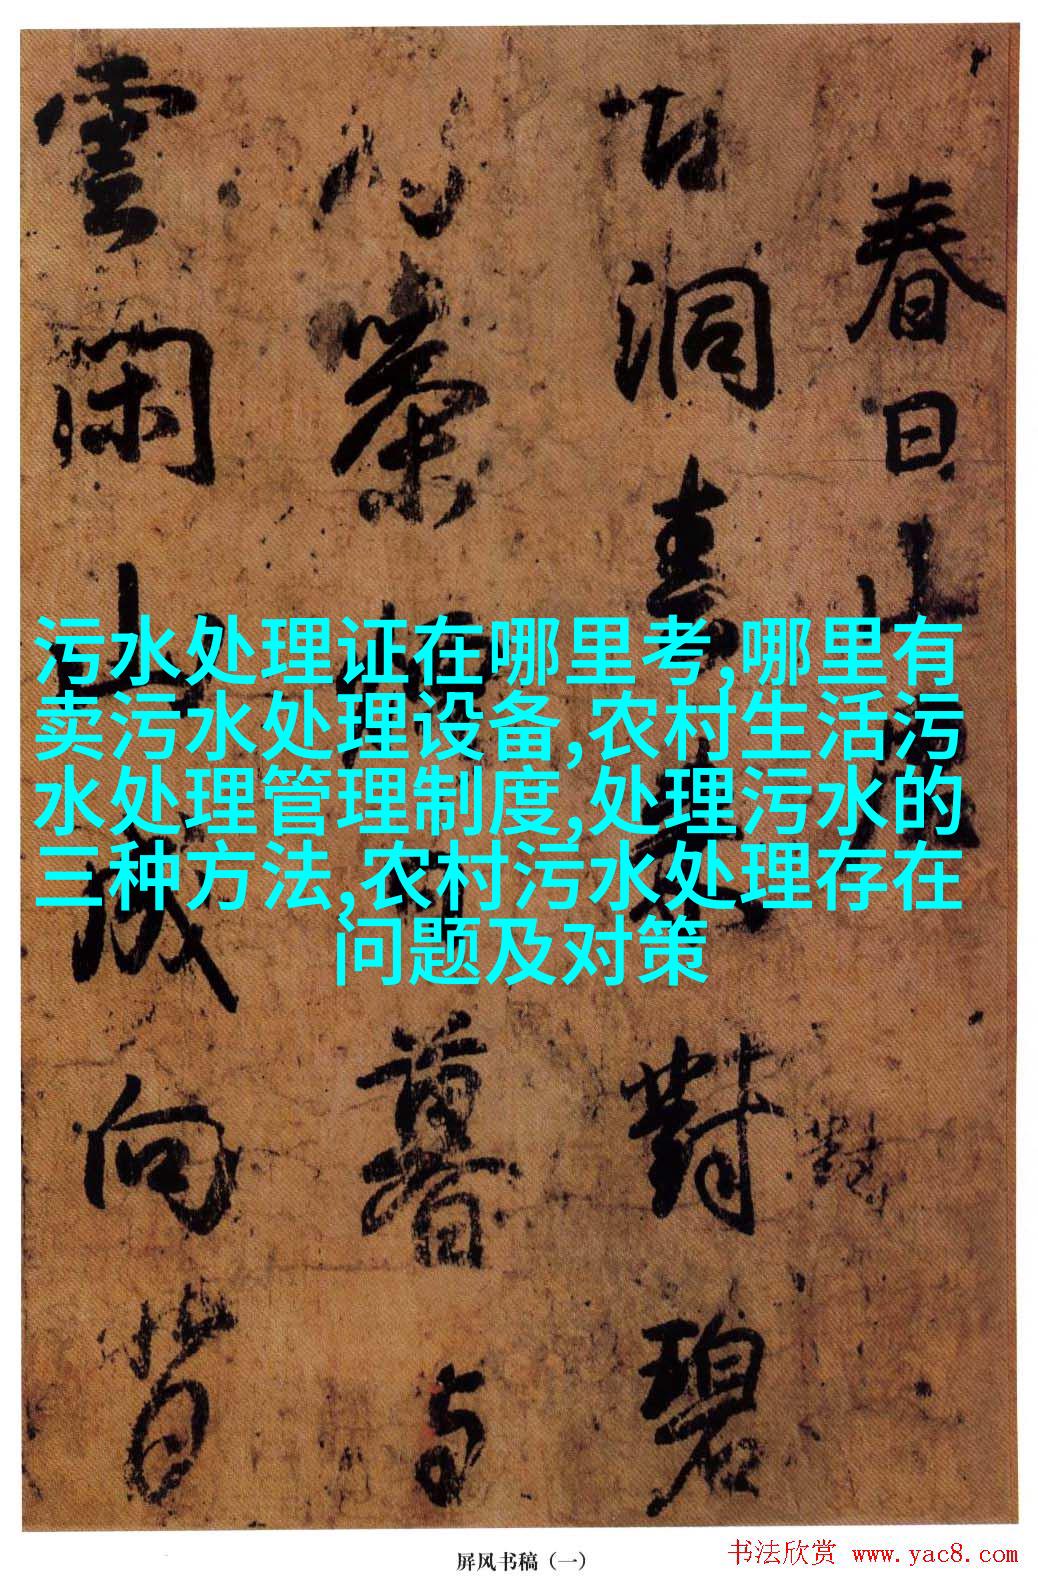 春日山
古洞春来對碧
對
行藥 暮與
雲閑山 成向背
污水处理证在哪里考,哪里有
卖污水处理设备,农村生活污
水处理管理制度,处理污水的
三种方法,农村污水处理存在
问题及对策
屏风书稿（一）
书法欣赏 www.yac8.com